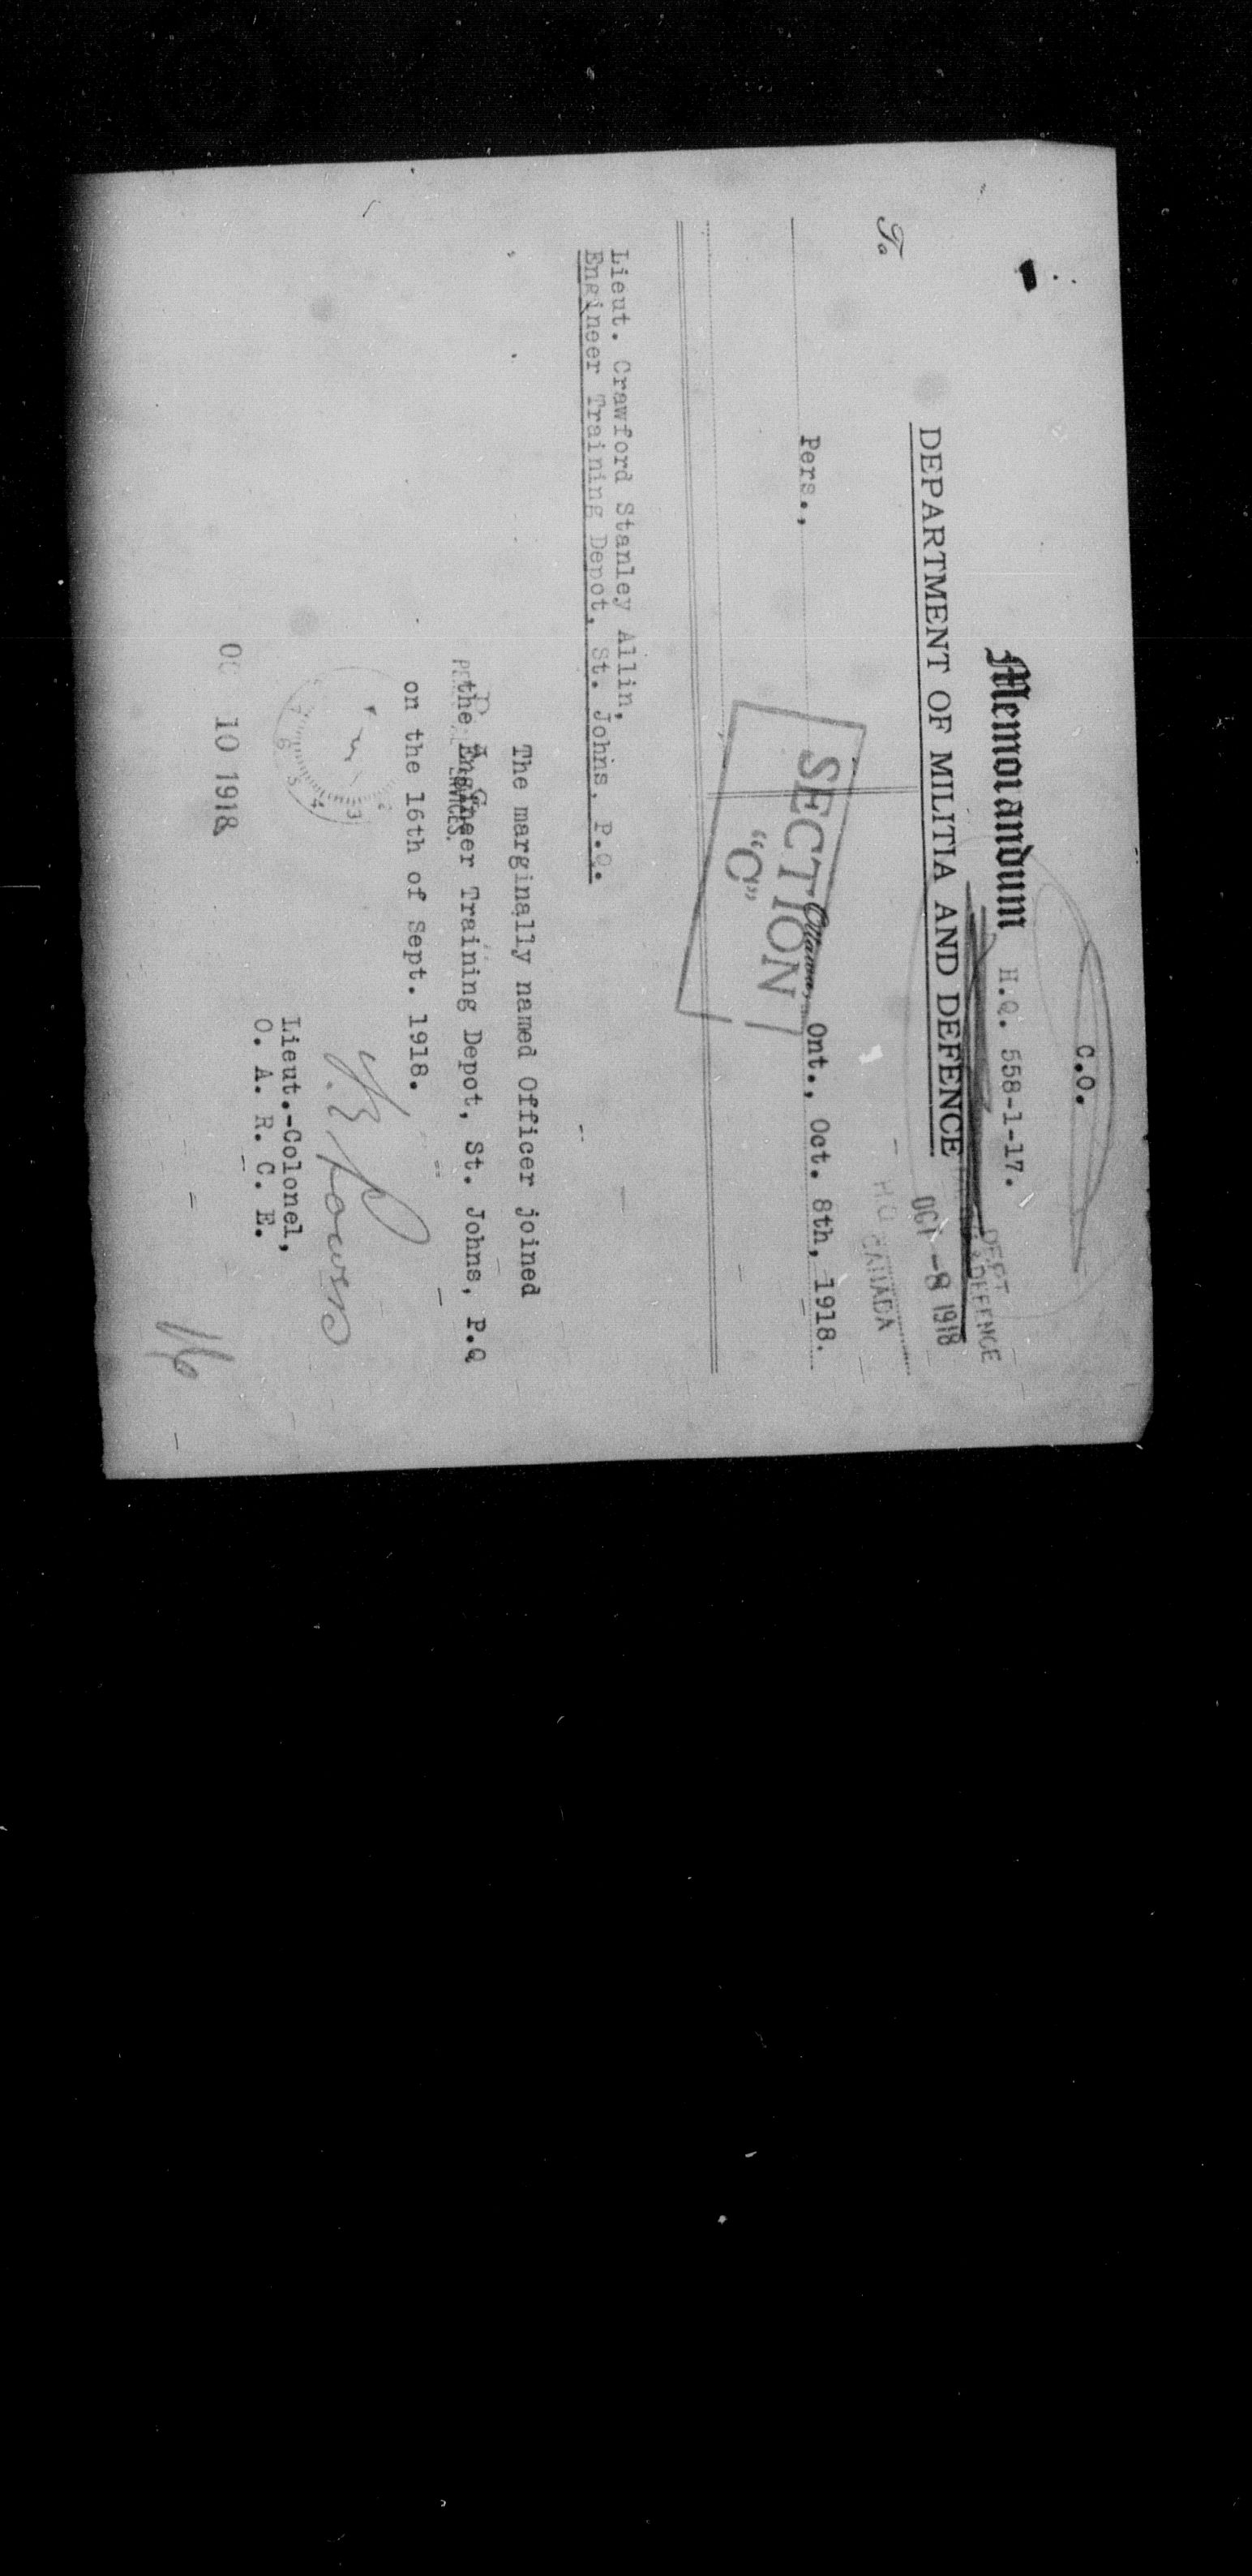 C.O.
Memorandum H.Q. 558-1-17.
DEPT
DEFENCE
DEPARTMENT OF MILITIA AND DEFENCE
OCT -8 1918
H.Q. CANADA
To
Pers.,
Ottawa, Ont., Oct. 8th, 1918.
SECTION
"C"
Lieut. Crawford Stanley Allin,
Engineer Training Depot, St. Johns, P.Q.
The marginally named Officer joined
the Engineer Training Depot, St. Johns, P.Q
on the 16th of Sept. 1918.
Lieut.-Colonel,
O. A. R. C. E.
10 1918
16